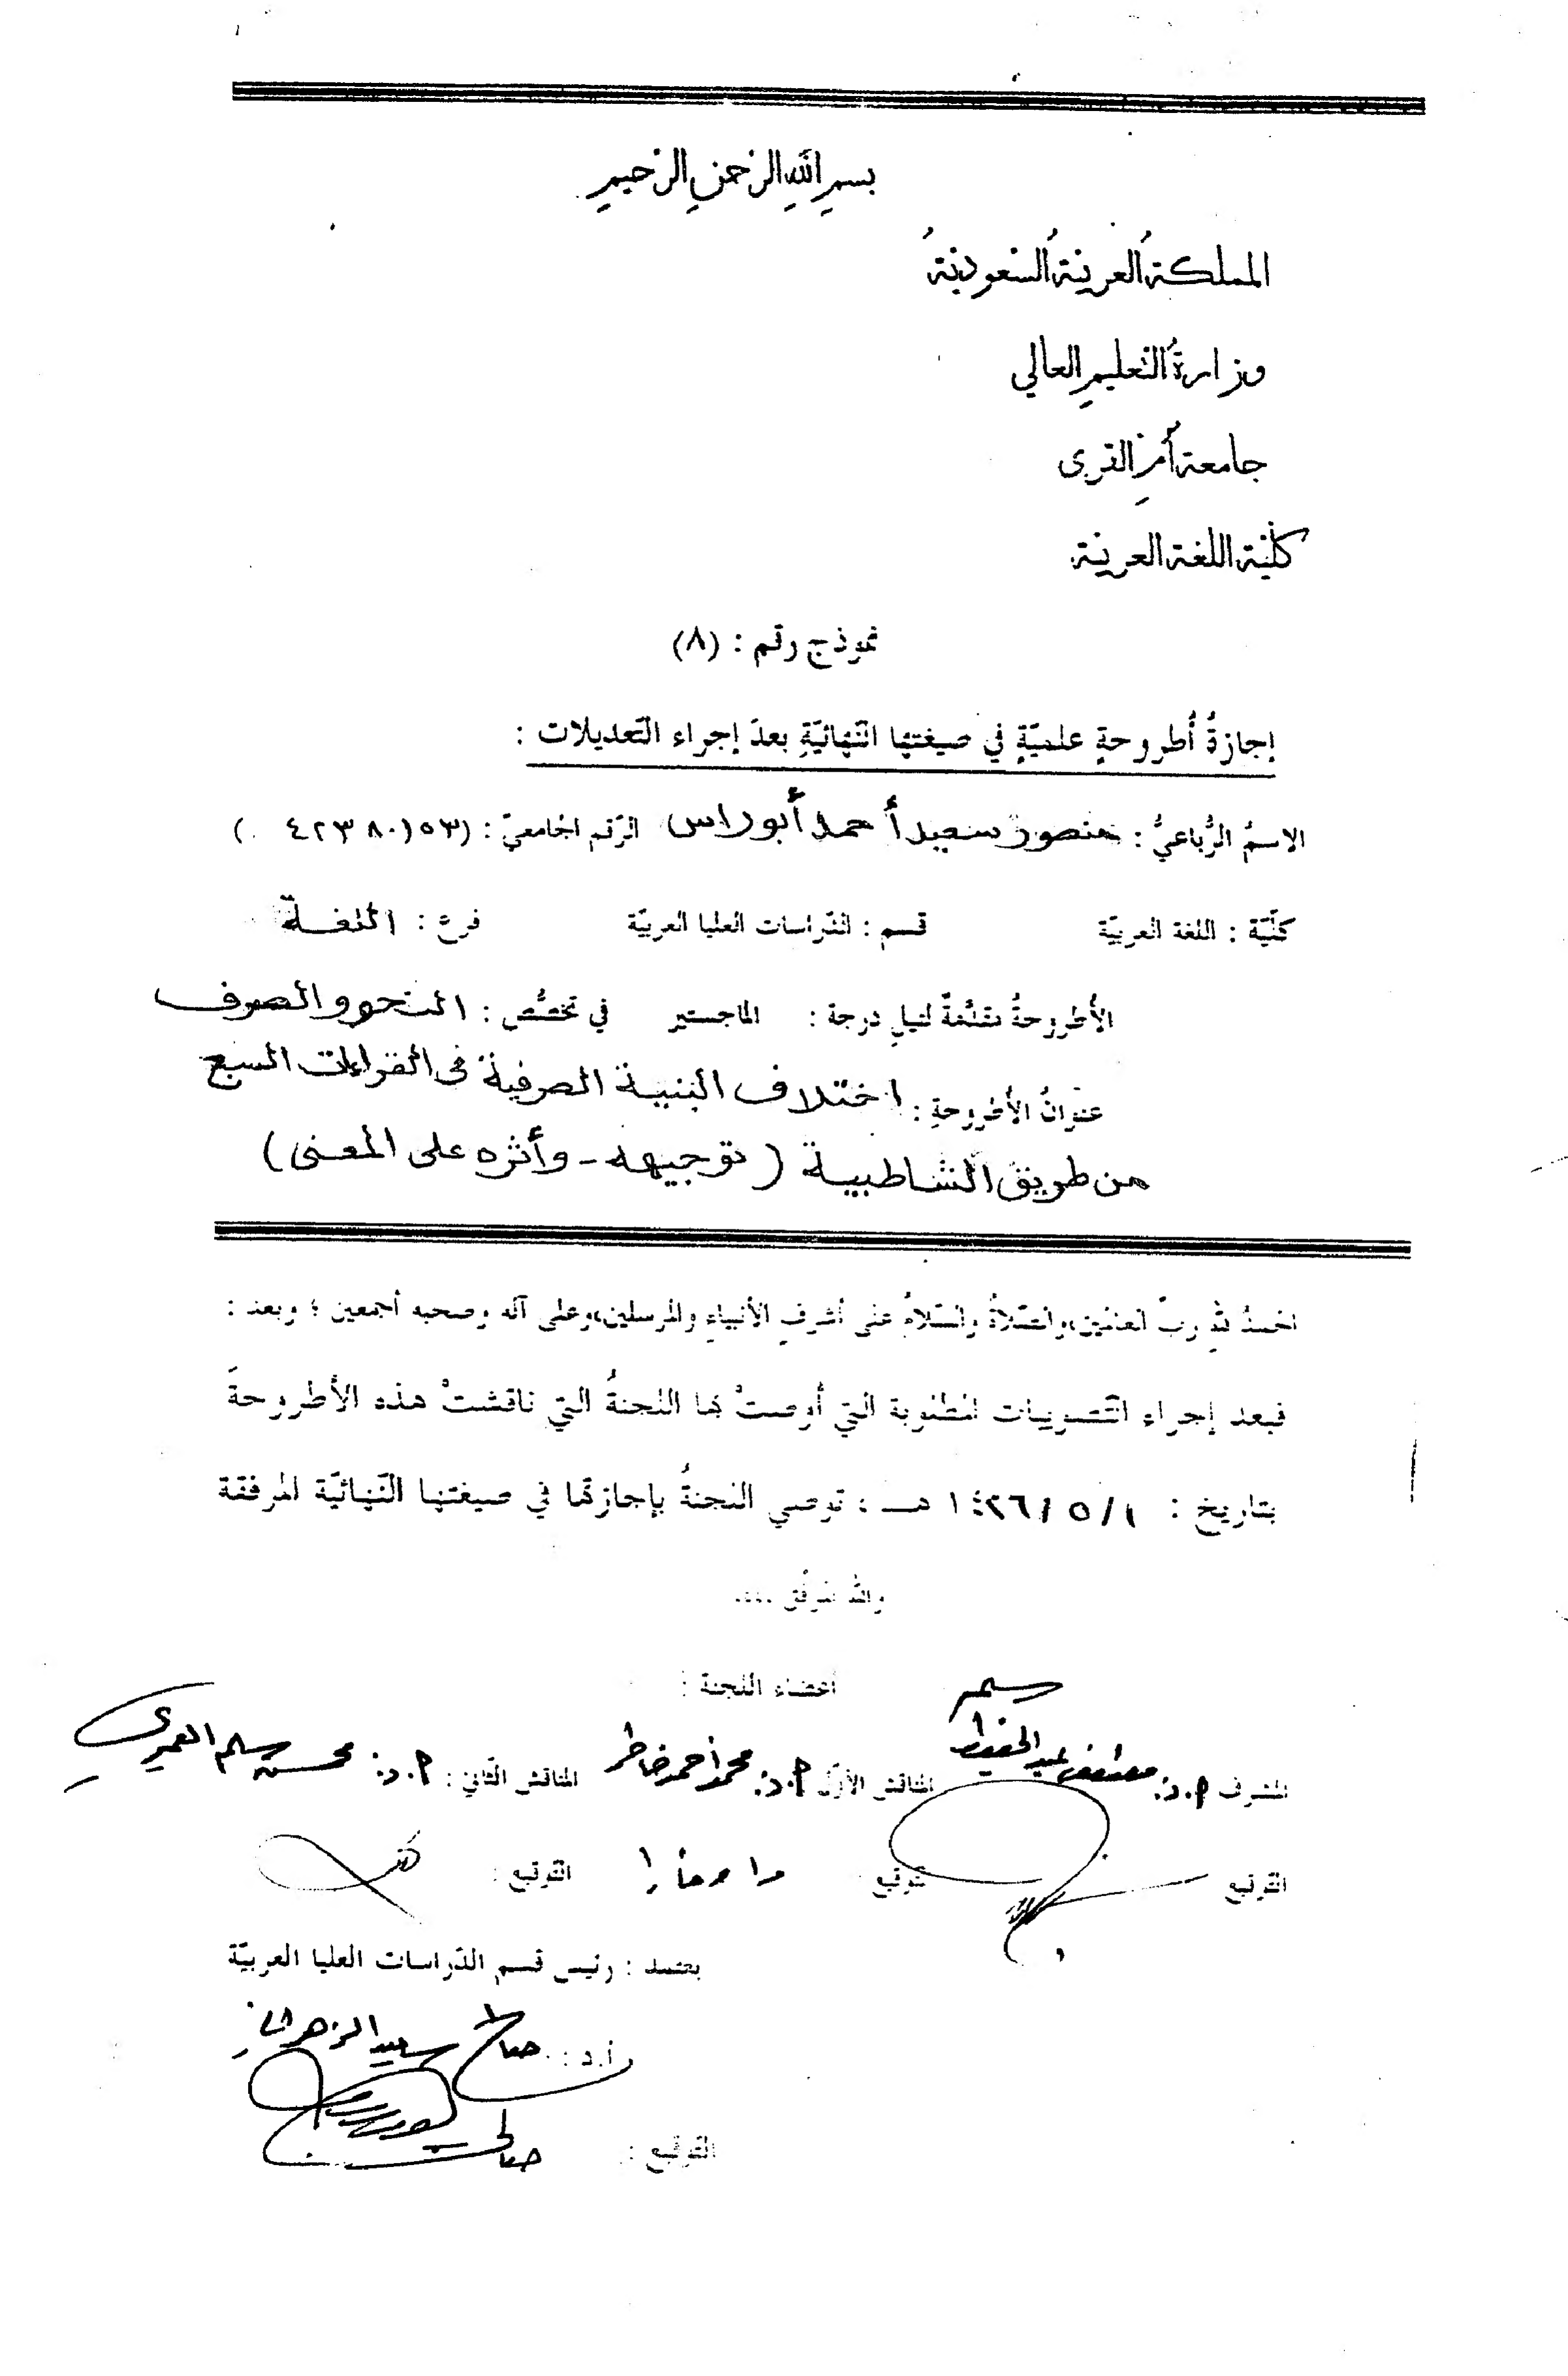 بسم الله الرحمن الرحيم
المملكة العربية السعودية
وزارة التعليم العالي
جامعة أم القرى
كلية اللغة العربية
نموذج رقم : (٨)
إجازةُ أُطروحةٍ علميّةٍ في صيغتها النّهائيّةِ بعدَ إجراء التّعديلات :
الاسمُ الرُّباعيُّ : منصور سعيد أحمد أبوراس الرّقم الجامعيّ : (٤٢٣٨٠١٥٣)
كلّيّة : اللغة العربيّة قسم : الدّراسات العليا العربيّة فرع : اللغة
الأُطروحةُ مقدَّمةٌ لنيلِ درجة : الماجستير في تخصُّص : النحو والصرف
عنوانُ الأُطروحةِ : اختلاف البنية الصرفية في القراءات السبع
من طريق الشاطبية (توجيهه - وأثره على المعنى)
الحمدُ للهِ ربِّ العالمين، والصّلاةُ والسّلامُ على أشرفِ الأنبياءِ والمرسلين، وعلى آله وصحبه أجمعين ؛ وبعد :
فبعد إجراء التّصويبات المطلوبة التي أوصتْ بها اللجنةُ التي ناقشتْ هذه الأطروحةَ
بتاريخ : ١ / ٥ / ١٤٢٦ هـ ، توصي اللجنةُ بإجازتها في صيغتها النّهائيّة المرفقة
والله الموفّق ....
أعضاء اللجنة :
المشرف أ.د: مصطفى عبد الحفيظ سالم المناقش الأوّل أ.د: محمد أحمد خاطر المناقش الثّاني : أ.د: محسن سالم العميري
التوقيع التوقيع التوقيع :
يعتمد : رئيس قسم الدّراسات العليا العربيّة
أ.د : صالح سعيد الزهراني
التوقيع :